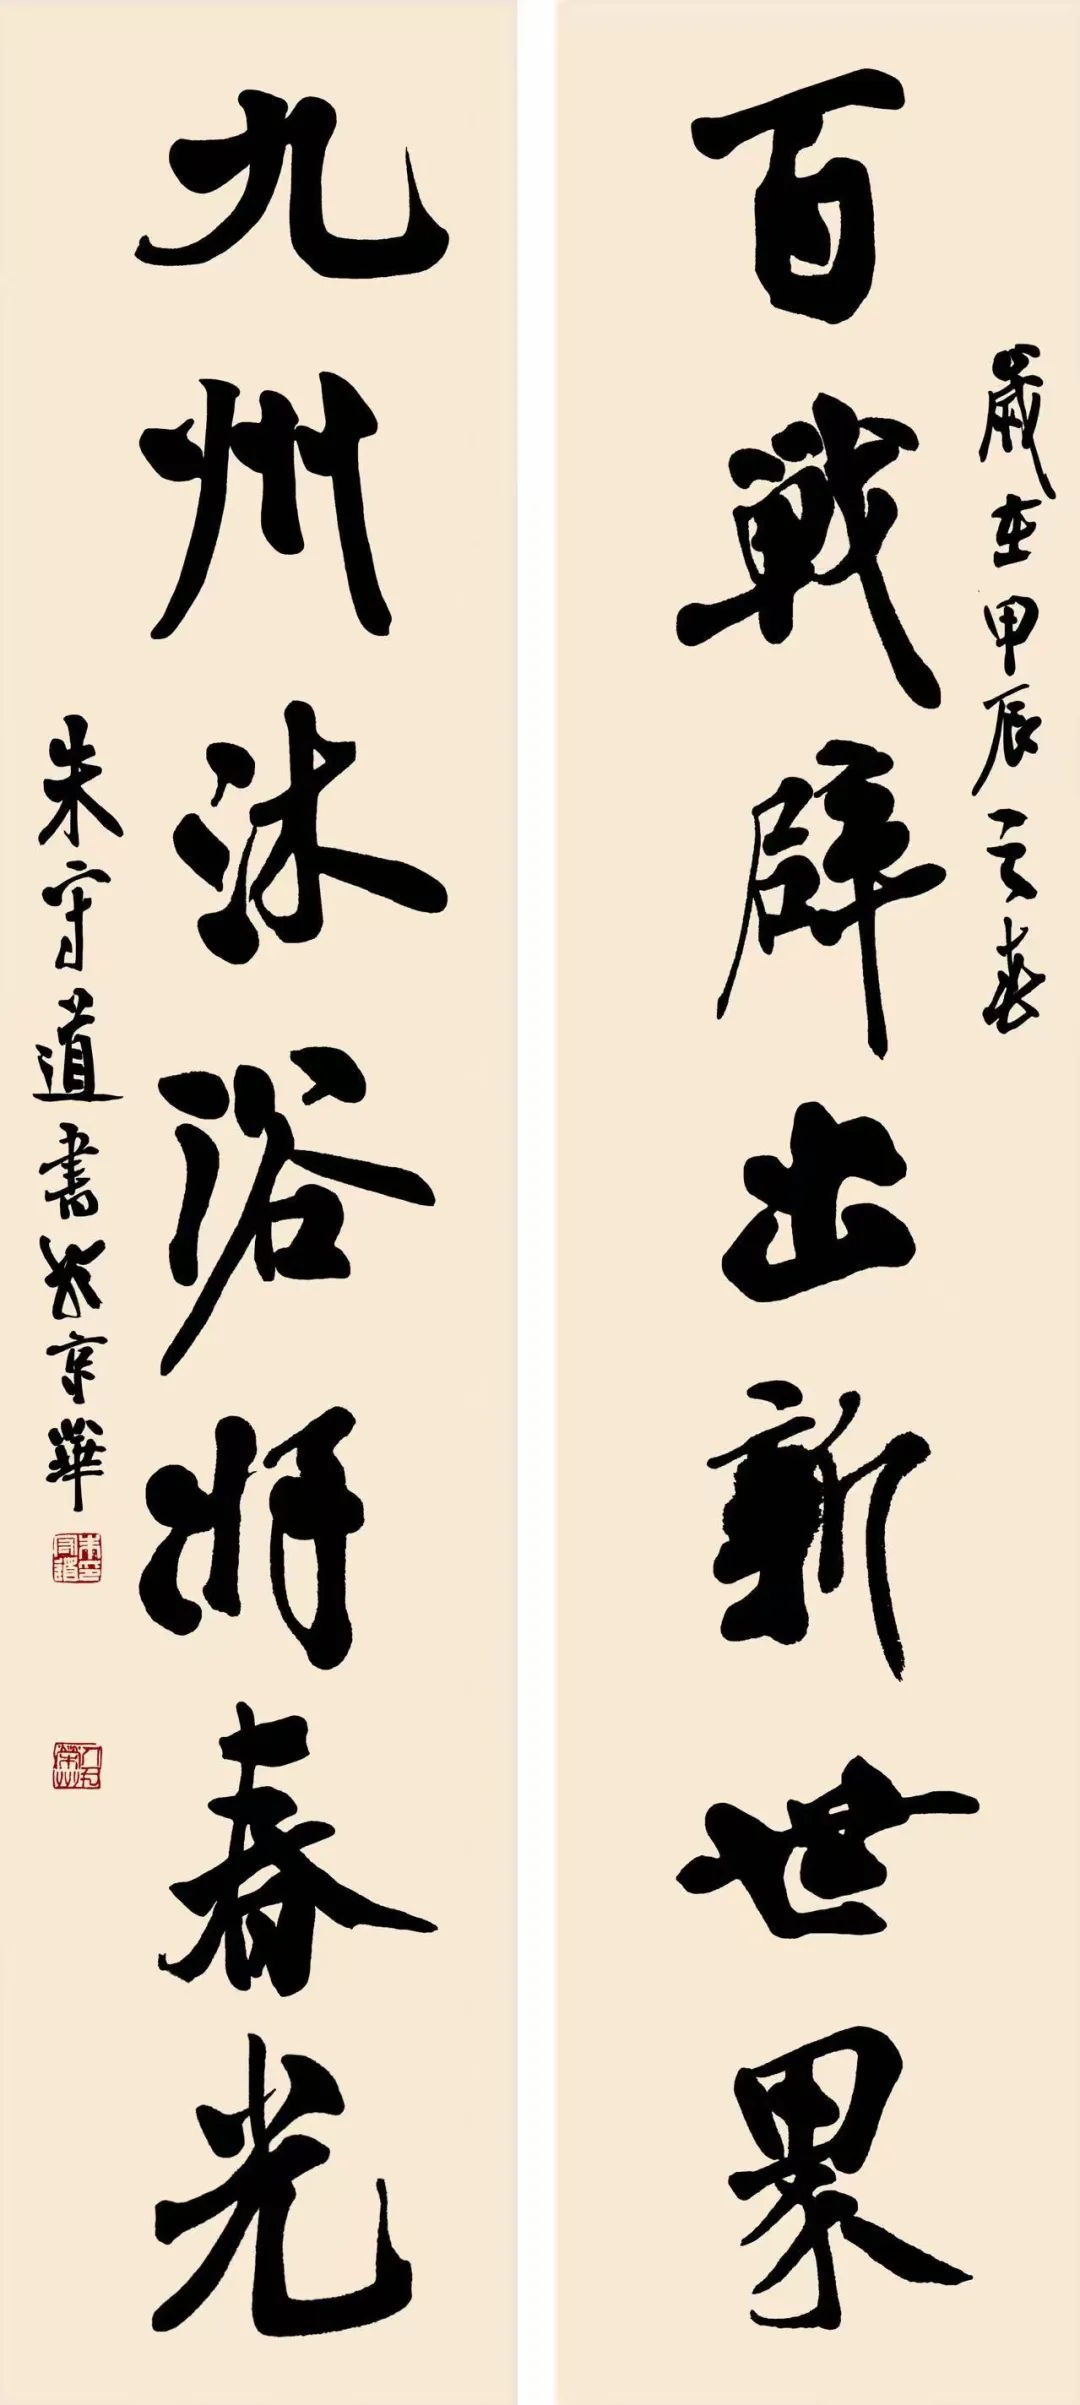 百戰辟出新世界
歲在甲辰之春
九州沐浴春光
朱守道書於京華